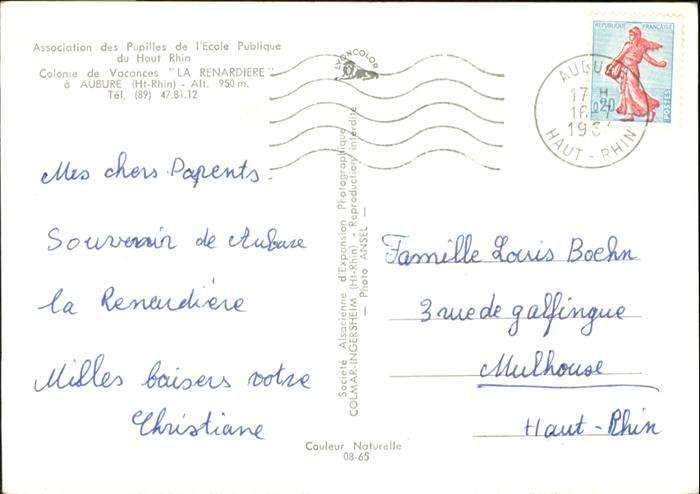 Association des Pupilles de l'Ecole Publique
du Haut Rhin
Colonie de Vacances "LA RENARDIERE"
à AUBURE (Ht-Rhin) - Alt. 950 m.
Tél. (89) 47.81.12
LYONCOLOR
REPUBLIQUE FRANÇAISE
0,20
POSTES
17 H
16 7
HAUT - RHIN
Mes chers Parents.
Souvenir de Aubure
la Renardière
Milles baisers votre
Christiane
Société Alsacienne d'Expansion Photographique
COLMAR-INGERSHEIM (Ht-Rhin) - Reproduction interdite
— Photo ANSEL —
Famille Louis Boehn
3 rue de galfingue
Mulhouse
Haut-Rhin
Couleur Naturelle
08-65